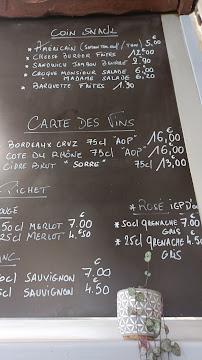 COIN SNACK
* AMÉRICAIN (STEACK FROM OEUF / THON) 5,00
* CHEESE BURGER FRITES 12.00
* SANDWICH JAMBON BEURRE 2.90
* CROQUE MONSIEUR SALADE 6.00
* " MADAME SALADE 6.20
* BARQUETTE FRITES 1.30
CARTE DES VINS
BORDEAUX CRUZ 75cl "AOP" 16,00
COTE DU RHÔNE 75cl "AOP" 16,00
CIDRE BRUT "SORRE" 75cl 13,00
PICHET
50cl MERLOT 7.00
25cl MERLOT 4.50
* ROSÉ IGP D'OC
* 50cl GRENACHE 7.00
GRIS
* 25cl GRENACHE 4.50
GRIS
50cl SAUVIGNON 7.00
25cl SAUVIGNON 4.50